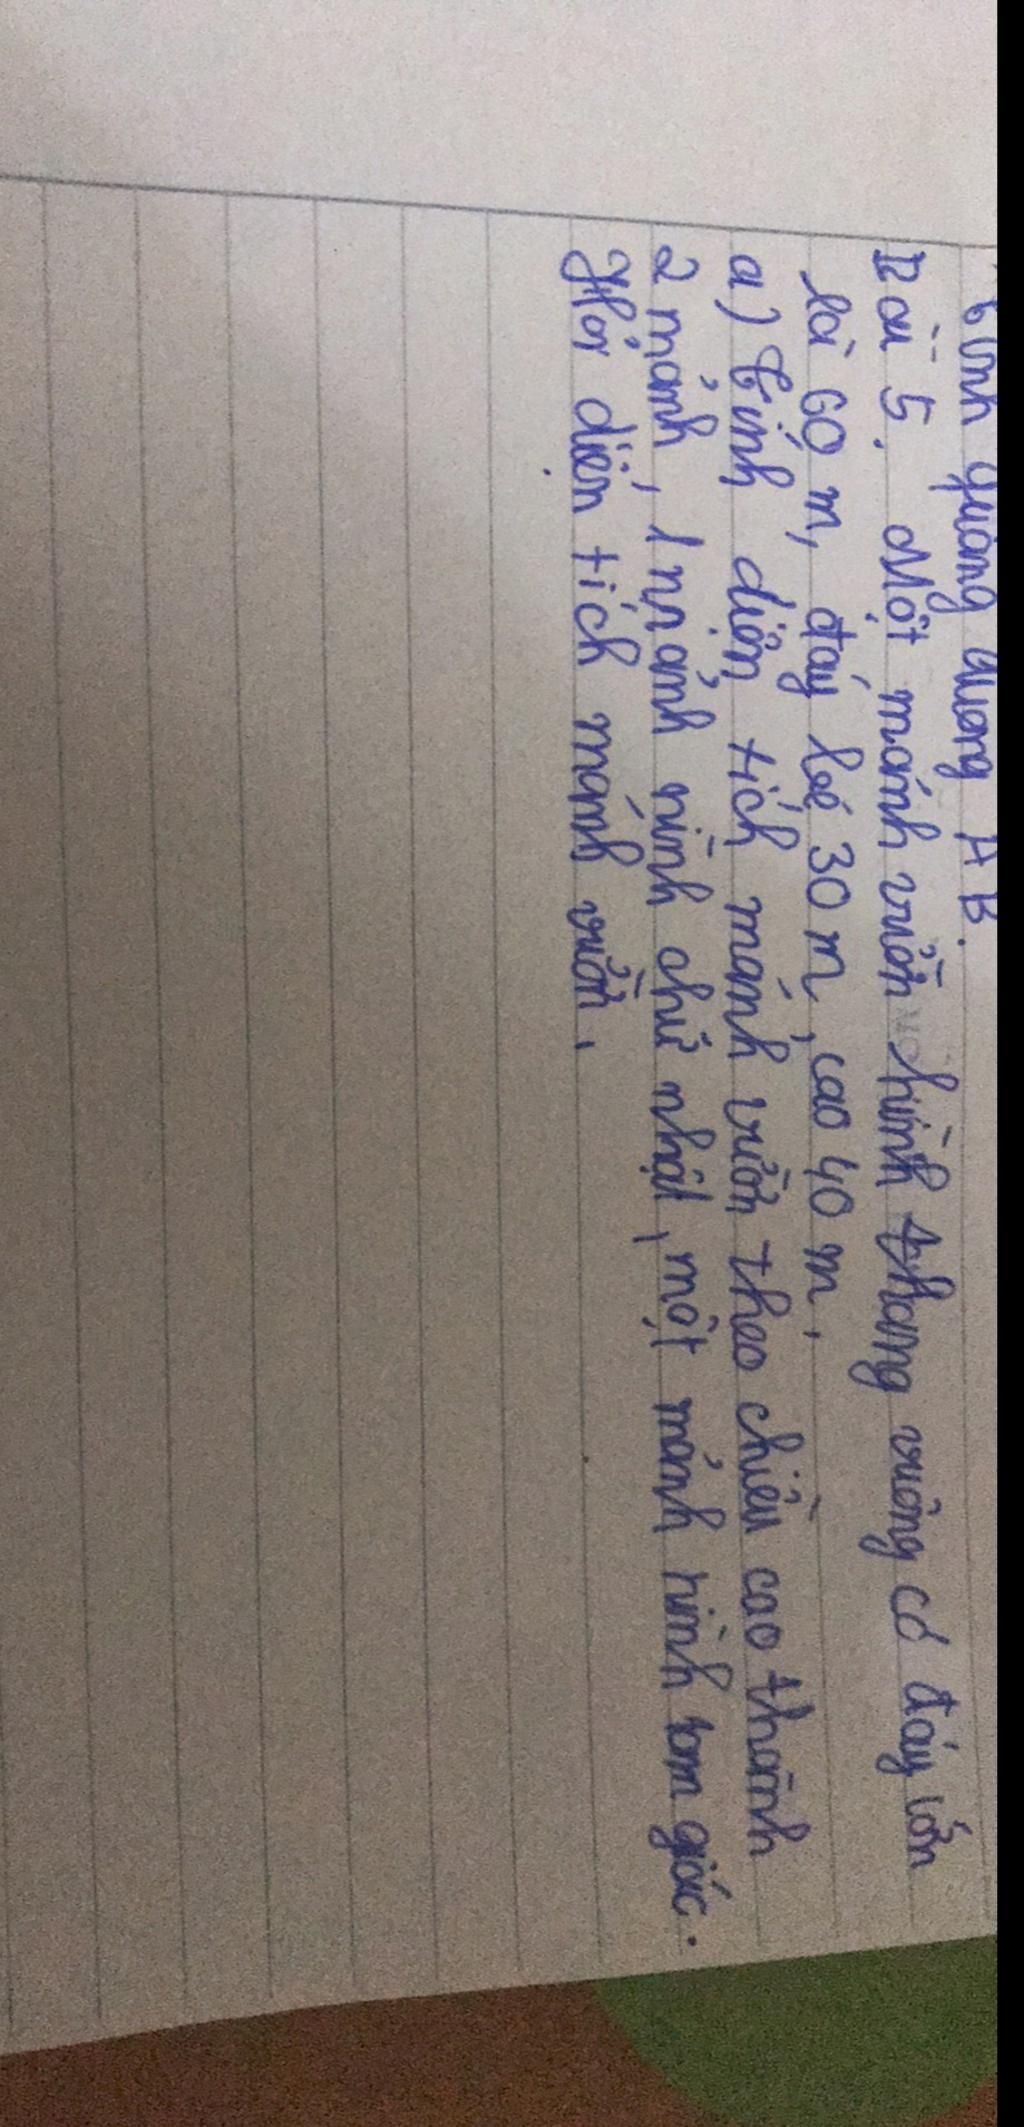 tính quãng đường AB.
Bài 5. Một mảnh vườn hình thang vuông có đáy lớn
là 60 m, đáy bé 30 m, cao 40 m.
a) Tính diện tích mảnh vườn theo chiều cao thành
2 mảnh, 1 mảnh hình chữ nhật, một mảnh hình tam giác.
Hỏi diện tích mảnh vườn.